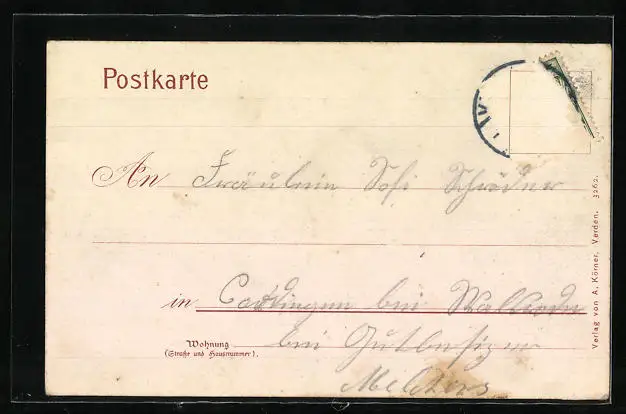 Postkarte
An Fräulein Sofi Schröder
in bei
Wohnung bei Gutbesizer
(Straße und Hausnummer).
Melchers
Verlag von A. Körner, Verden. 3262.